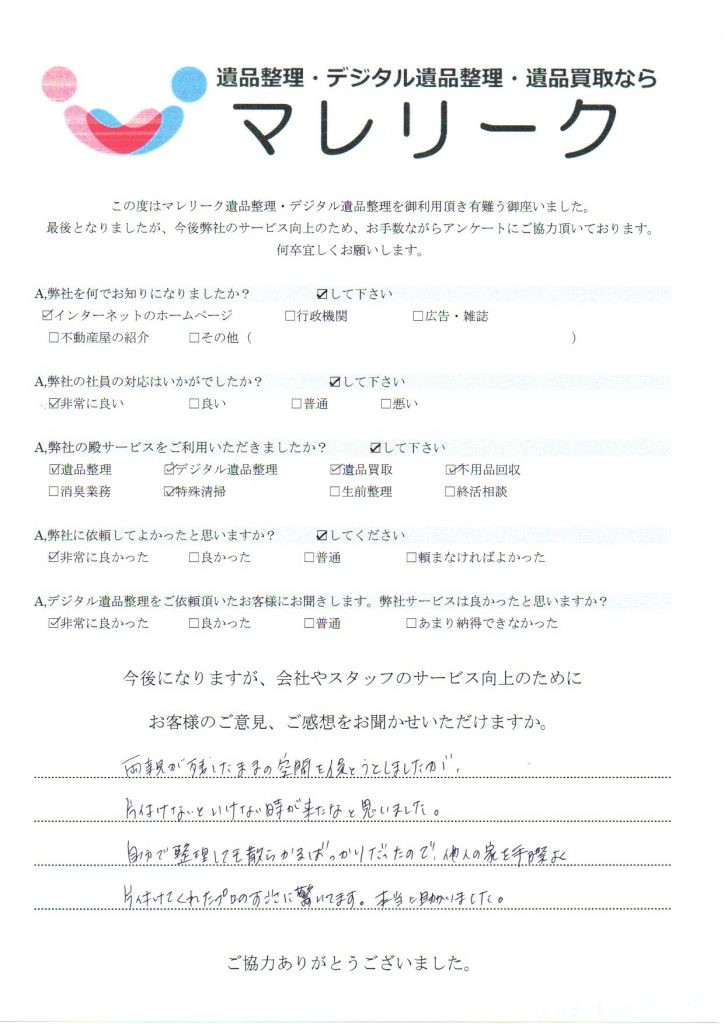 遺品整理・デジタル遺品整理・遺品買取なら
マレリーク
この度はマレリーク遺品整理・デジタル遺品整理を御利用頂き有難う御座いました。
最後となりましたが、今後弊社のサービス向上のため、お手数ながらアンケートにご協力頂いております。
何卒宜しくお願いします。
A,弊社を何でお知りになりましたか？ ☑して下さい
☑インターネットのホームページ □行政機関 □広告・雑誌
□不動産屋の紹介 □その他（ ）
A,弊社の社員の対応はいかがでしたか？ ☑して下さい
☑非常に良い □良い □普通 □悪い
A,弊社の殿サービスをご利用いただきましたか？ ☑して下さい
☑遺品整理 ☑デジタル遺品整理 ☑遺品買取 ☑不用品回収
□消臭業務 ☑特殊清掃 □生前整理 □終活相談
A,弊社に依頼してよかったと思いますか？ ☑してください
☑非常に良かった □良かった □普通 □頼まなければよかった
A,デジタル遺品整理をご依頼頂いたお客様にお聞きします。弊社サービスは良かったと思いますか？
☑非常に良かった □良かった □普通 □あまり納得できなかった
今後になりますが、会社やスタッフのサービス向上のために
お客様のご意見、ご感想をお聞かせいただけますか。
両親が残したままの空間を保とうとしましたが、
片付けないといけない時が来たなと思いました。
自分で整理しても散らかるばっかりだったので、他人の家を手際よく
片付けてくれたプロのすごさに驚いてます。本当に助かりました。
ご協力ありがとうございました。